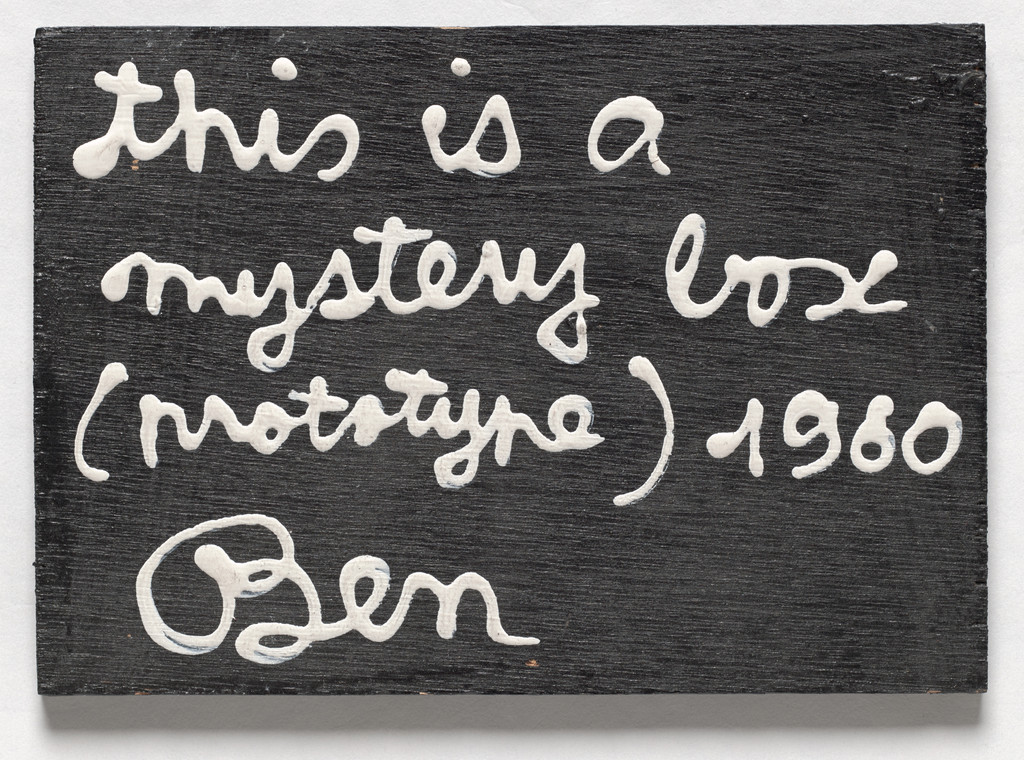 this is a
mystery box
(prototype) 1960
Ben